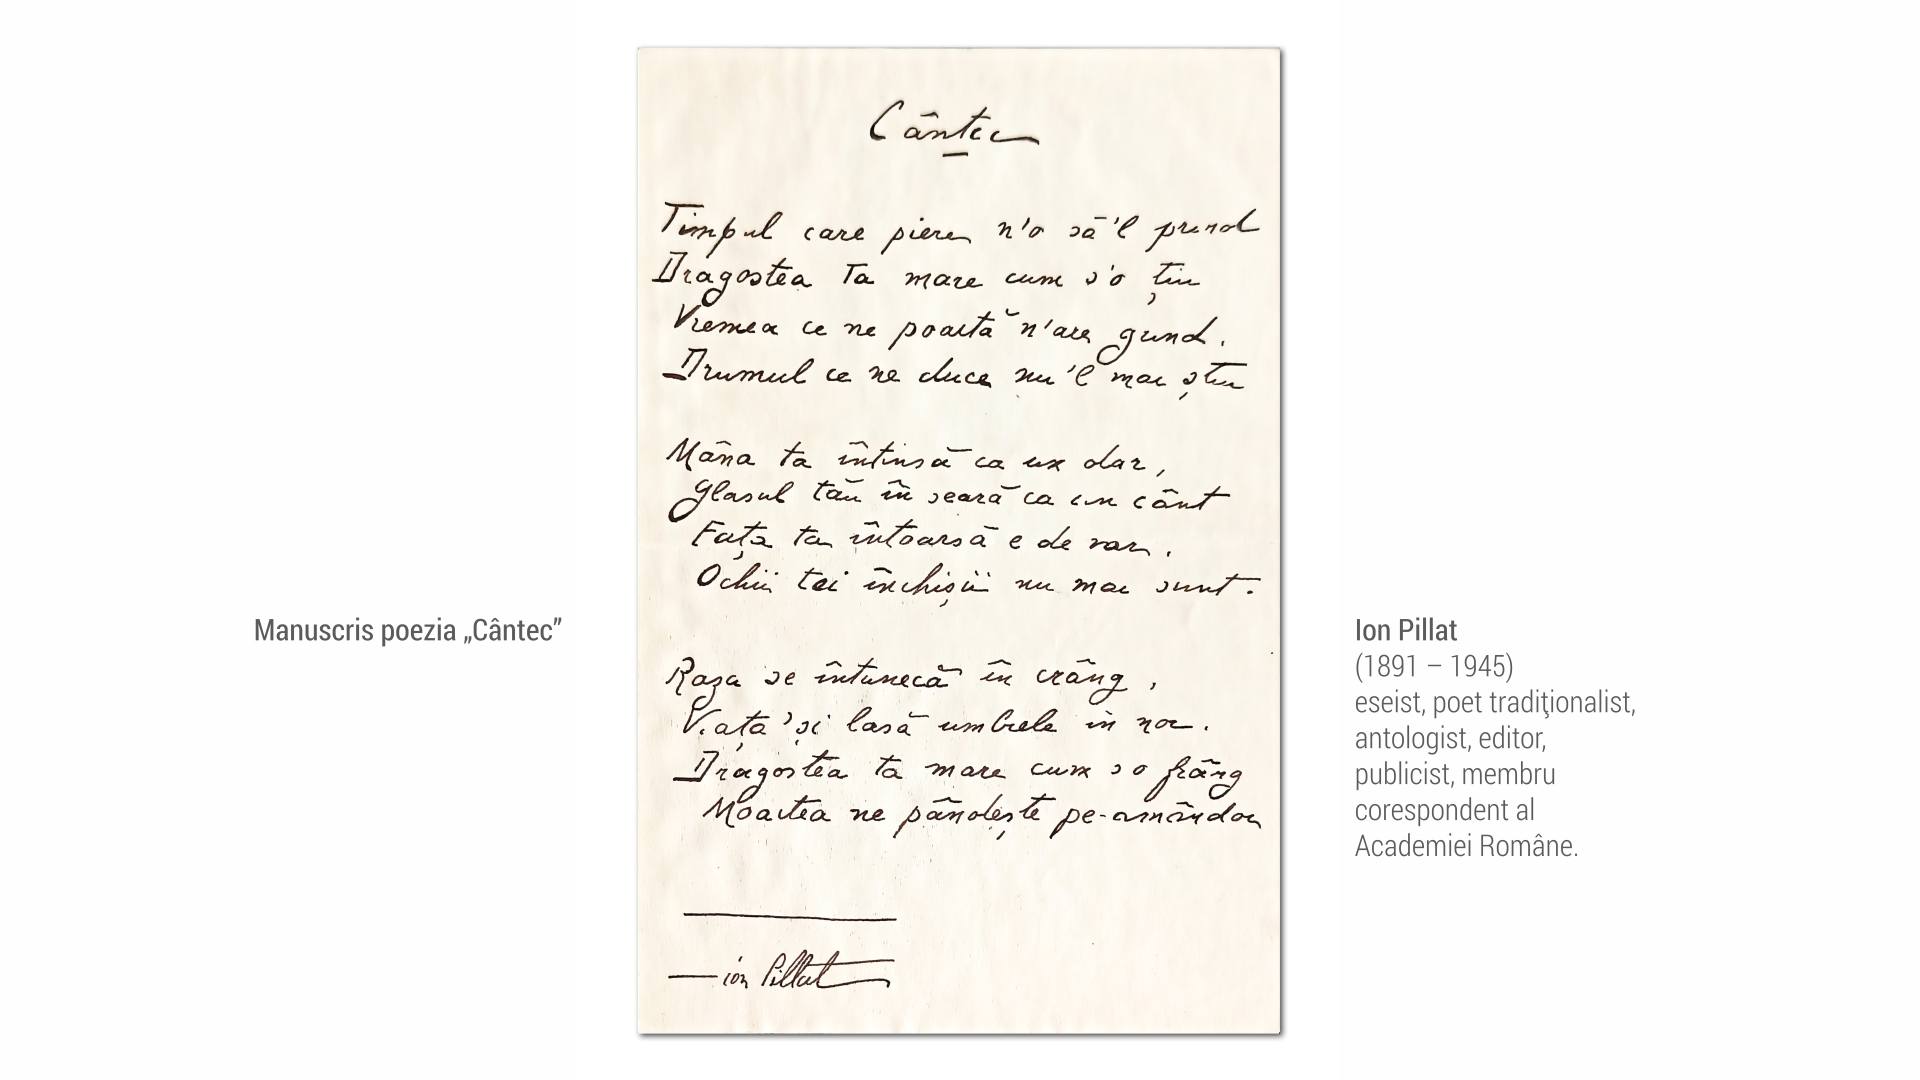 Cântec
Timpul care piere n'o să'l prind
Dragostea Ta mare cum s'o țiu
Vremea ce ne poartă n'are gând.
Drumul ce ne duce nu'l mai știu
Mâna ta întinsă ca un dar,
Glasul tău în seară ca un cânt
Fața ta întoarsă e de var.
Ochii tăi închișii nu mai sunt.
Raza se întunecă în crâng,
Viața'și lasă umbrele in noi.
Dragostea ta mare cum s'o frâng
Moartea ne pândește pe-amândoi
ion Pillat
Manuscris poezia „Cântec”
Ion Pillat
(1891 – 1945)
eseist, poet tradiţionalist,
antologist, editor,
publicist, membru
corespondent al
Academiei Române.